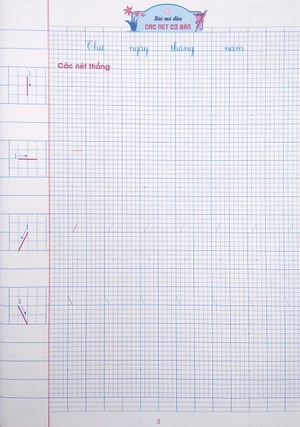 Bài mở đầu
CÁC NÉT CƠ BẢN
Thứ ngày tháng năm
Các nét thẳng
1
1
1
1
3